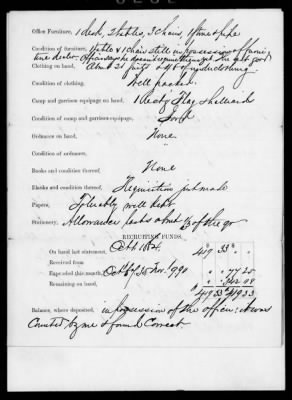 Office Furniture, 1 desk, 2 tables, 3 chairs, 1 stove & pipe
Condition of furniture, table & 1 chair still in possession of furni
ture dealer. Officer says he
Clothing on hand, About 21 suits
Condition of clothing, Well packed
Camp and garrison equipage on hand, 1 Flag & halliards
Condition of camp and garrison equipage, Good
Ordnance on hand, None
Condition of ordnance,
Books and condition thereof, None
Blanks and condition thereof, Requisition just made
Papers, Tolerably well kept
Stationery, Allowance lasts about 2/3 of the qr
RECRUITING FUNDS.
On hand last statement, Oct 1st 419 33
Received from
Expended this month, 77 25
Remaining on hand, 342 08
419 33 419 33
Balance, where deposited, in possession of the officer; it was
Counted by me & found Correct.